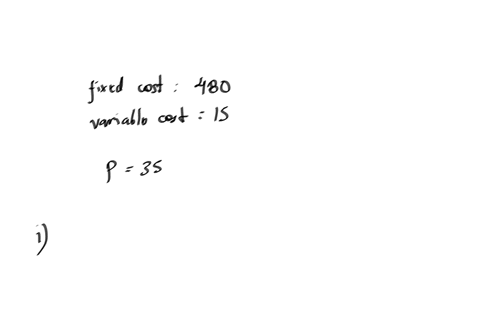 fixed cost : 480
variable cost = 15
P = 35
i)